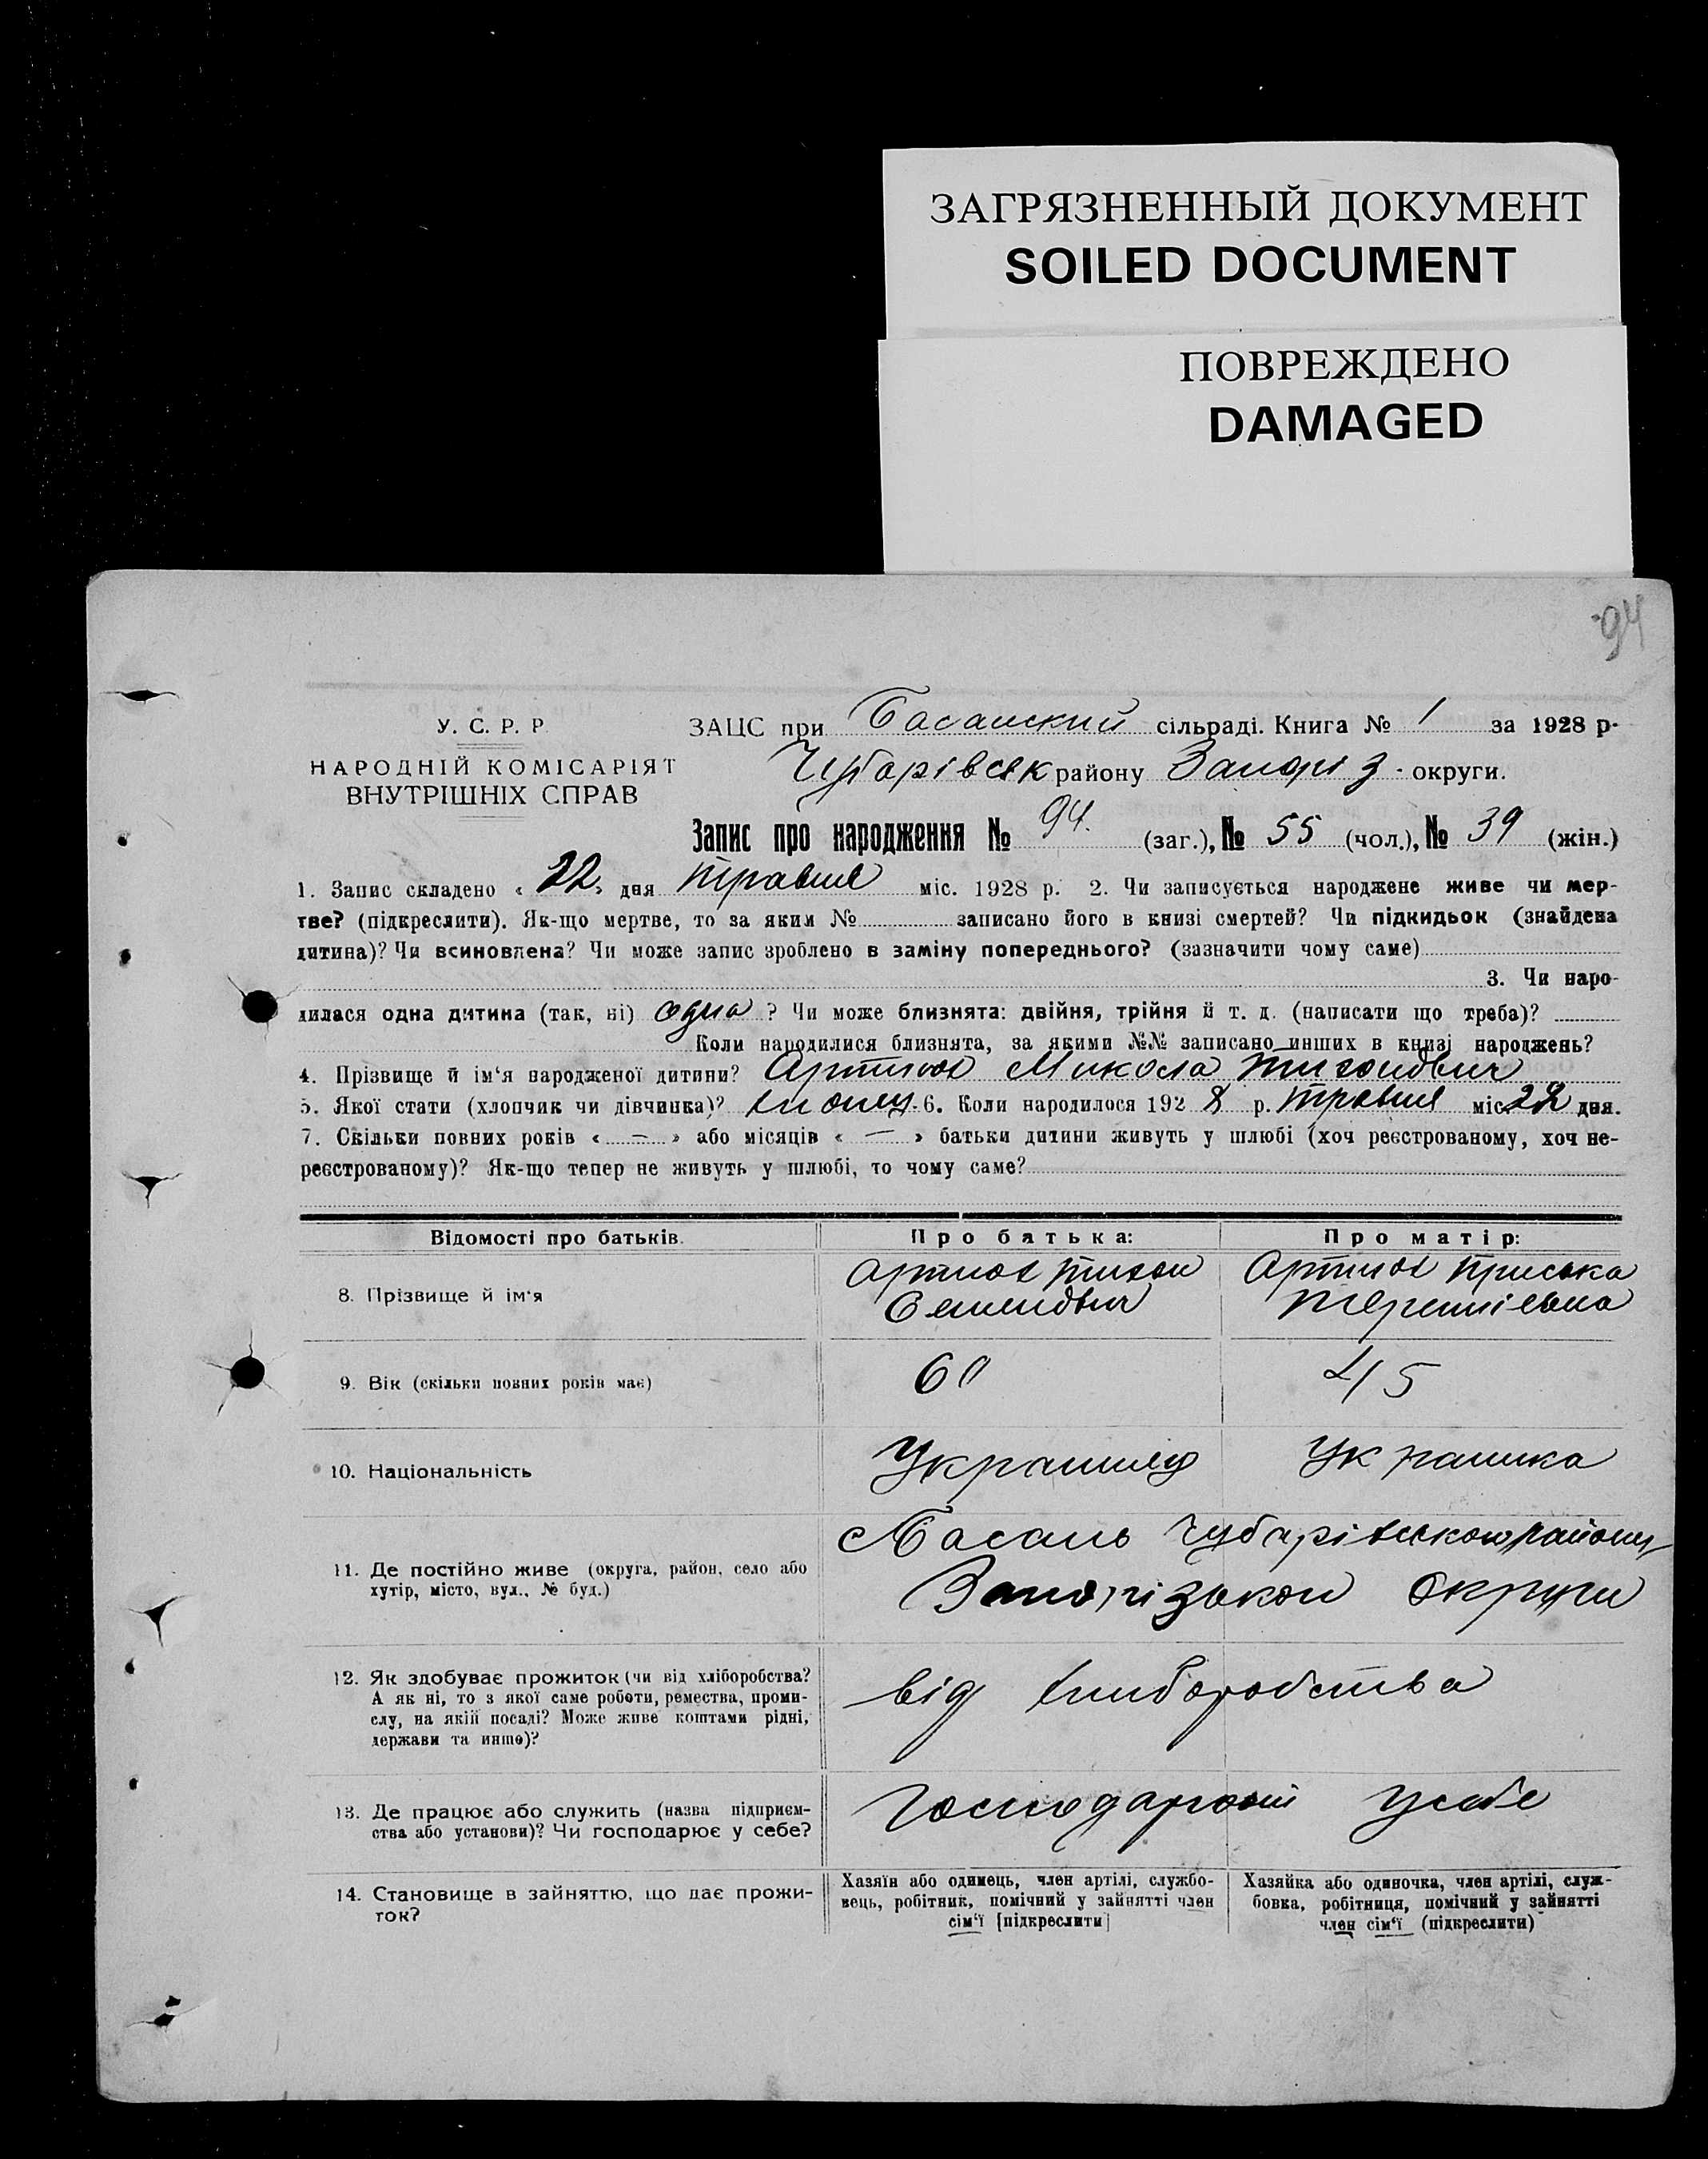 ЗАГРЯЗНЕННЫЙ ДОКУМЕНТ
SOILED DOCUMENT
ПОВРЕЖДЕНО
DAMAGED
94
У. С. Р. Р.
НАРОДНІЙ КОМІСАРІЯТ
ВНУТРІШНІХ СПРАВ
ЗАЦС при Басанский сільраді. Книга № 1 за 1928 р.
Чубарівськ району Запоріз. округи.
Запис про народження № 94. (заг.), № 55 (чол.), № 39 (жін.)
1. Запис складено « 22 » дня травня міс. 1928 р. 2. Чи записується народжене живе чи мер-
тве? (підкреслити). Як-що мертве, то за яким № записано його в книзі смертей? Чи підкидьок (знайдена
дитина)? Чи всиновлена? Чи може запис зроблено в заміну попереднього? (зазначити чому саме)
3. Чи наро-
дилася одна дитина (так, ні) одна ? Чи може близнята: двійня, трійня й т. д. (написати що треба)?
Коли народилися близнята, за якими №№ записано инших в книзі народжень?
4. Прізвище й ім'я народженої дитини? Артюх Микола Тихонович
5. Якої стати (хлопчик чи дівчинка)? 6. Коли народилося 192 8 р. травня міс 22 дня.
7. Скільки повних років « — » або місяців « — » батьки дитини живуть у шлюбі (хоч реєстрованому, хоч не-
реєстрованому)? Як-що тепер не живуть у шлюбі, то чому саме?
Відомості про батьків. Про батька: Про матір:
8. Прізвище й ім'я
Артюх Тихон Артюх Приська
Семенович Терентіевна
9. Вік (скільки повних років має) 60 45
10. Національність Украинец Украинка
Басань Чубарівского району
11. Де постійно живе (округа, район, село або
хутір, місто, вул., № буд.)
Запорізькои Округи
12. Як здобуває прожиток (чи від хліборобства?
А як ні, то з якої саме роботи, ремества, проми-
слу, на якій посаді? Може живе коштами рідні,
держави та инше)?
від хлиборобства
13. Де працює або служить (назва підприєм-
ства або установи)? Чи господарює у себе?
усебе
14. Становище в зайняттю, що дає прожи-
ток?
Хазяїн або одинець, член артілі, службо-
вець, робітник, помічний у зайнятті член
сім'ї [підкреслити]
Хазяйка або одиночка, член артілі, служ-
бовка, робітниця, помічний у зайнятті
член сім'ї (підкреслити)